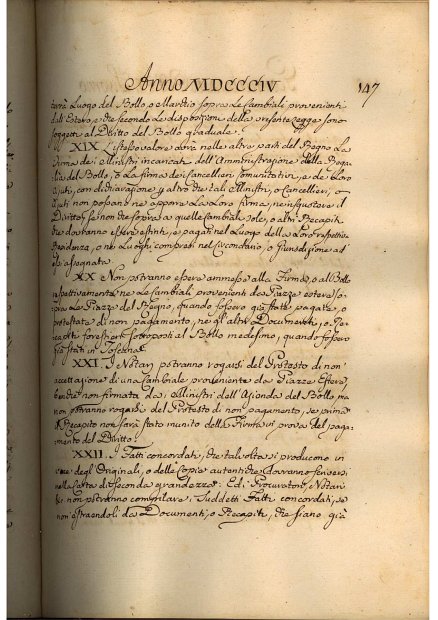 Anno MDCCCIV 147
terrà Luogo del Bollo, o Marchio sopra Le Cambiali provenienti
dall'Estero, e che secondo Le disposizioni della presente Legge sono
soggetti al Diritto del Bollo graduale.
XIX. L'istesso valore avrà nelle altre parti del Regno La
Firma dei Ministri incaricati dell'Amministrazione della Rega-
lia del Bollo, o La firma dei Cancellieri Comunitativi, e de' Loro
Ajuti, con dichiarazione però che tali Ministri, o Cancellieri, o
Ajuti non possano apporre La Loro firma, ne riscuotere il
Diritto se non che sopra a quelle Cambiali sole, o altri Recapiti
che dovranno essere estinti, e pagati nel Luogo della Loro respettiva
Residenza, o ne Luoghi compresi nel Circondario, o Giurisdizione ad
essi assegnata.
XX. Non potranno essere ammesse alla Firma, o al Bollo
respettivamente, ne Le Cambiali provenienti da Piazze estere so-
pra Le Piazze del Regno, quando fossero già state pagate, o
protestate di non pagamento, ne gli altri Documenti, o Re-
capiti forestieri sottoposti al Bollo medesimo, quando fossero
già stati in Toscana.
XXI. I Notari potranno rogarsi del Protesto di non
accettazione di una Cambiale proveniente da Piazza Estera,
benchè non firmata da' Ministri dell'Azienda del Bollo, ma
non potranno rogarsi del Protesto di non pagamento, se prima
il Recapito non sarà stato munito della Firma in prova del paga-
mento del Diritto.
XXII. I Fatti concordati, che talvolta si producono in
vece degl'Originali, o delle Copie autentiche dovranno scriversi
nella Carta di seconda grandezza: Ed i Procuratori, e Notari
non potranno compilare i Suddetti Fatti concordati, se
non estraendoli da Documenti, o Recapiti, che siano già